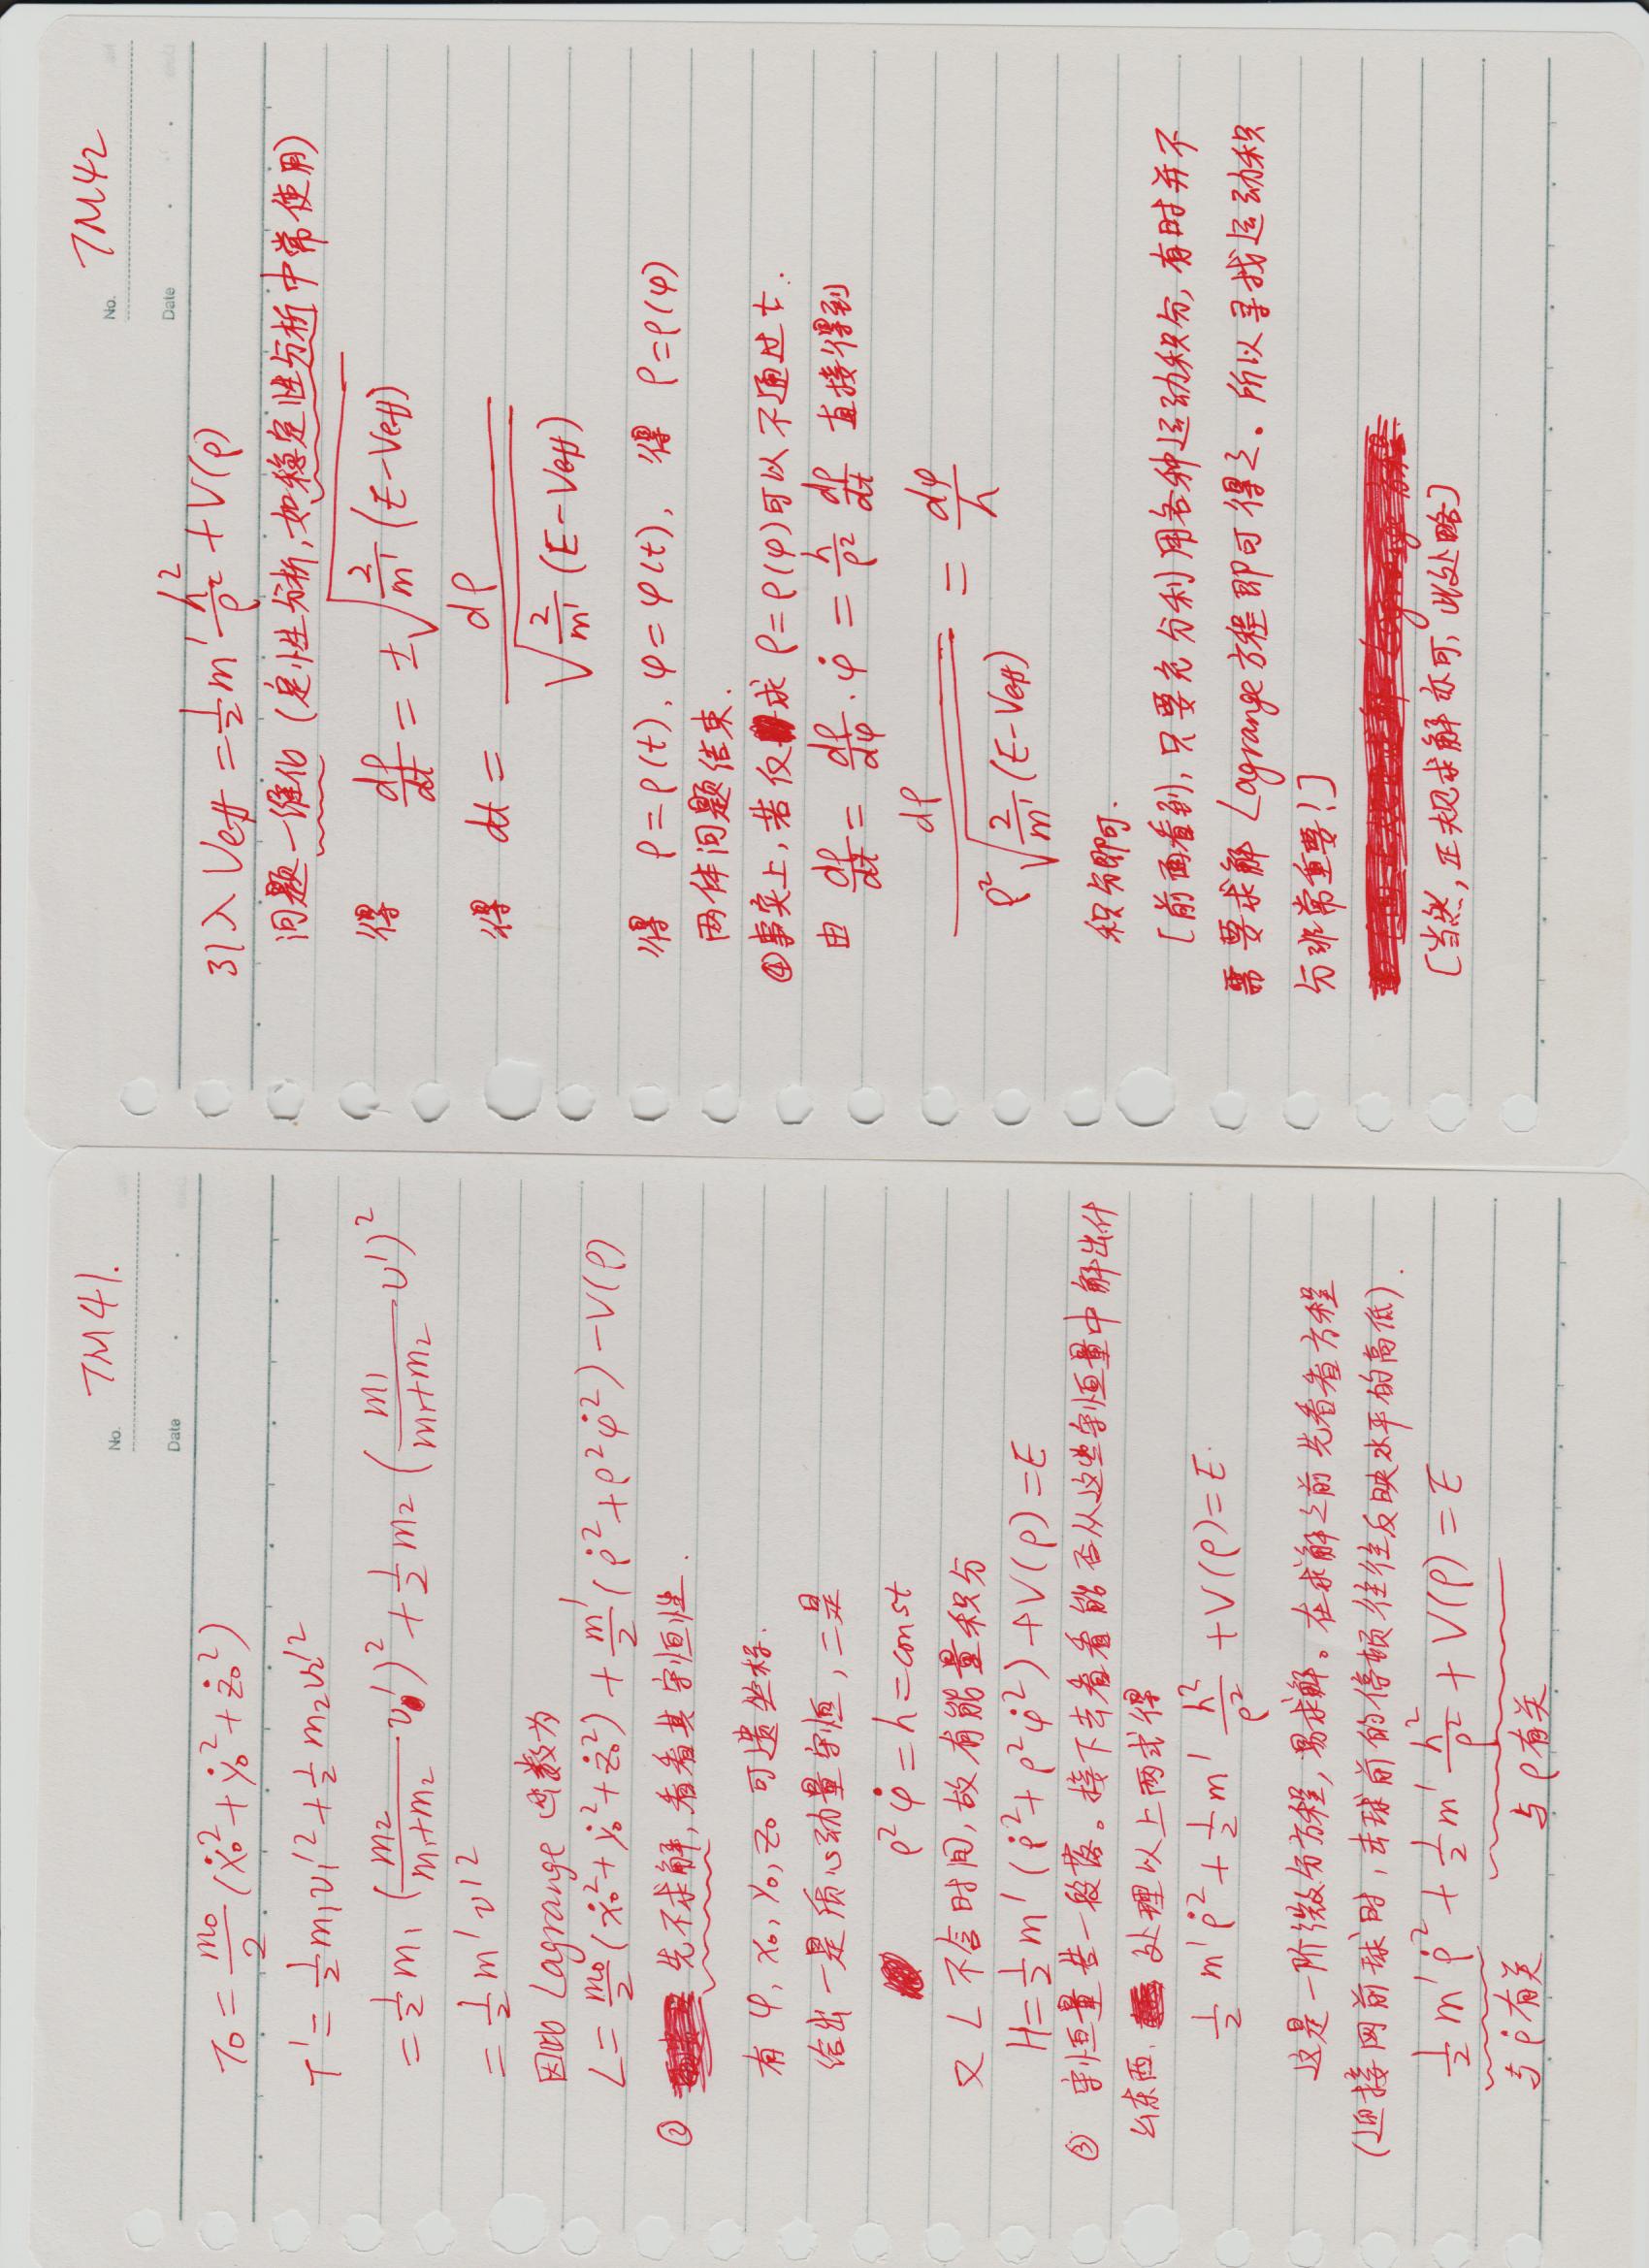 No. TM41.
Date
T₀ = m₀/2 (ẋ₀² + ẏ₀² + ż₀²)
T' = 1/2 m₁v₁'² + 1/2 m₂v₂'²
= 1/2 m₁ (m₂/(m₁+m₂) v')² + 1/2 m₂ (m₁/(m₁+m₂) v')²
= 1/2 m'v'²
因此 Lagrange 函数为
L = m₀/2 (ẋ₀² + ẏ₀² + ż₀²) + m'/2 (ρ̇² + ρ²φ̇²) − V(ρ)
② 先不求解, 看看其守恒性.
有 φ, x₀, y₀, z₀ 可遗坐标.
给出一是质心动量守恒, 二是
ρ²φ̇ = h = const
又 L 不含时间, 故有能量积分
H = 1/2 m' (ρ̇² + ρ²φ̇²) + V(ρ) = E
③ 守恒量告一段落。接下去看看能否从这些守恒量中解出什
么东西. 处理以上两式得
1/2 m'ρ̇² + 1/2 m' h²/ρ² + V(ρ) = E.
这是一阶微分方程, 易求解。在求解之前先看看方程
(迎接网前球时, 击球前的停顿往往反映水平的高低).
1/2 m'ρ̇² + 1/2 m' h²/ρ² + V(ρ) = E
与 ρ̇ 有关 与 ρ 有关
No. TM42
Date
引入 Veff = 1/2 m' h²/ρ² + V(ρ)
问题一维化 (定性分析, 如稳定性分析中常使用)
得 dρ/dt = ±√(2/m' (E−Veff))
得 dt = dρ/√(2/m' (E−Veff))
得 ρ=ρ(t), φ=φ(t), 得 ρ=ρ(φ)
两体问题结束.
④事实上, 若仅求 ρ=ρ(φ)可以不通过t.
由 dρ/dt = dρ/dφ · φ̇ = h/ρ² dρ/dt 直接得到
dρ/(ρ²√(2/m' (E−Veff))) = dφ/h
积分即可.
[前面看到, 只要充分利用各种运动积分, 有时并不
需要求解 Lagrange方程即可得之。所以寻找运动积
分非常重要!]
[当然, 正规求解亦可, 此处略]